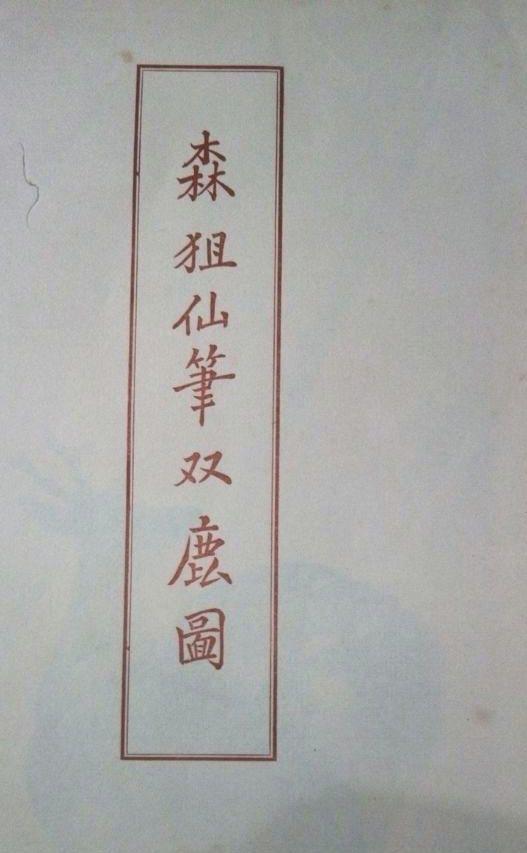 森狙仙筆双鹿圖